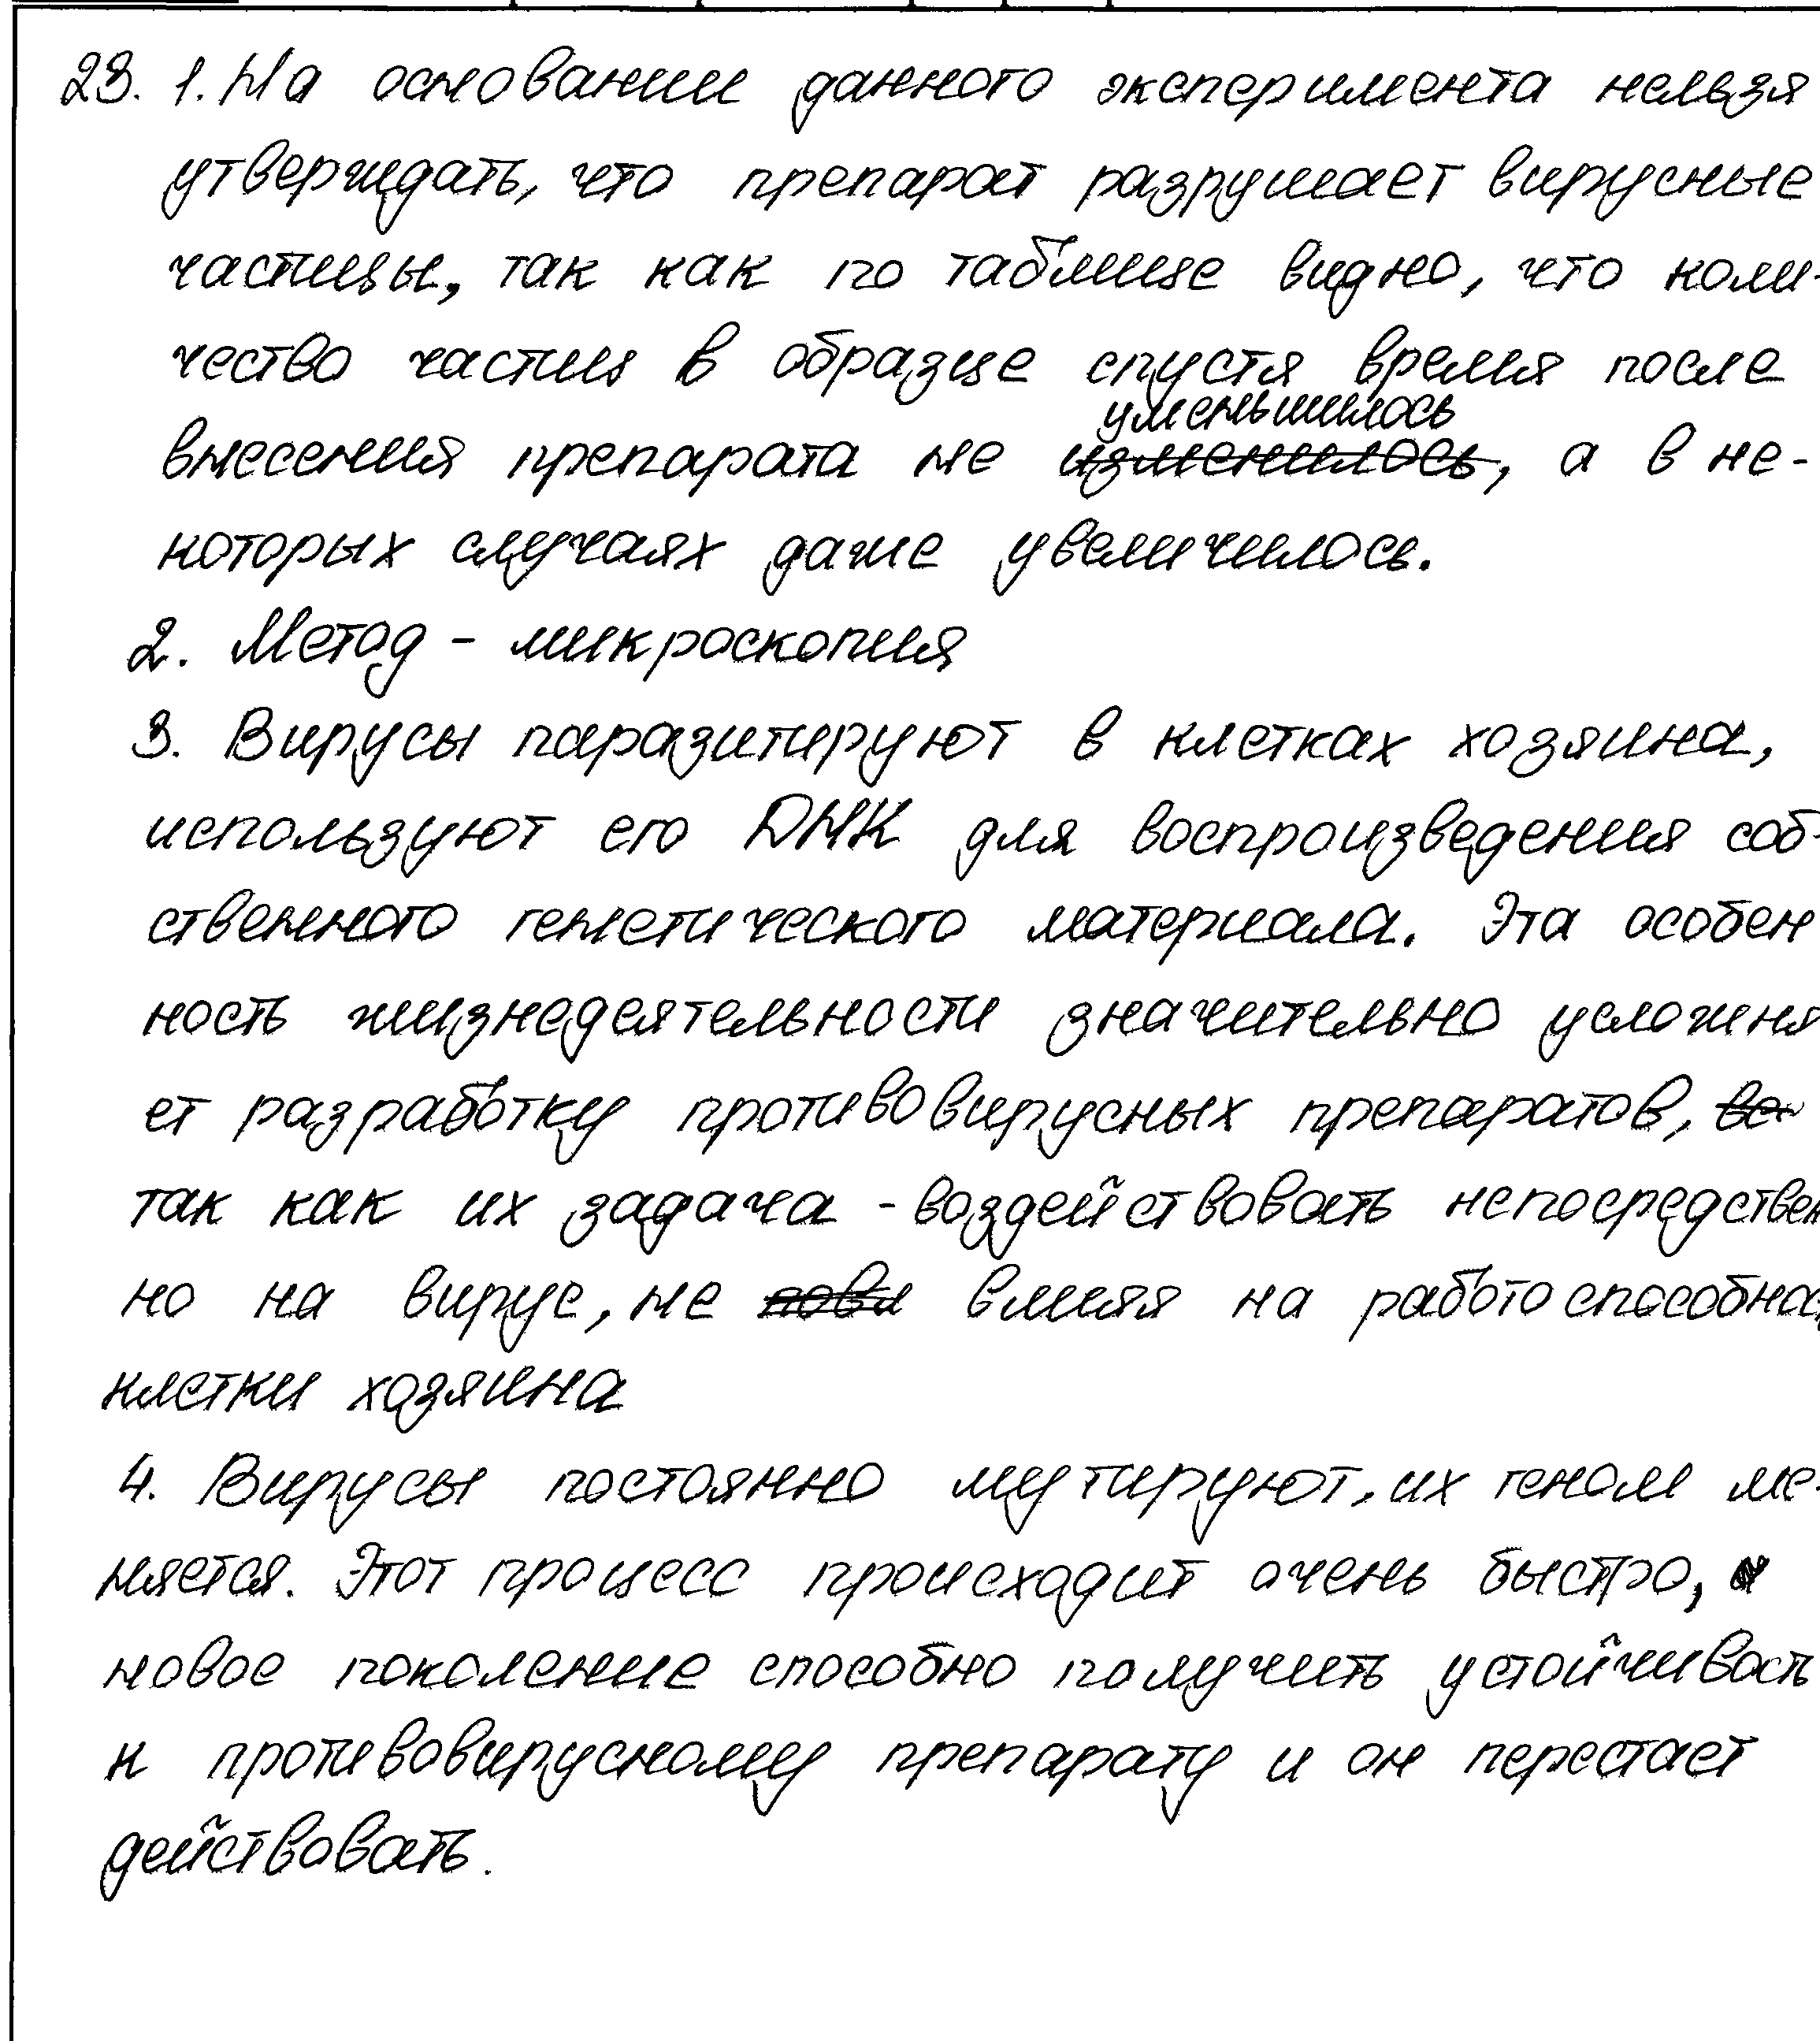 23. 1. На основании данного эксперимента нельзя
утверждать, что препарат разрушает вирусные
частицы, так как по таблице видно, что коли-
чество частиц в образце спустя время после
уменьшилось
внесения препарата не изменилось, а в не-
которых случаях даже увеличилось.
2. Метод - микроскопия
3. Вирусы паразитируют в клетках хозяина,
используют его ДНК для воспроизведения соб-
ственного генетического материала. Эта особен
ность жизнедеятельности значительно усложня
ет разработку противовирусных препаратов,
так как их задача - воздействовать непосредствен
но на вирус, не влияя на работоспособнос
клетки хозяина
4. Вирусы постоянно мутируют, их геном ме-
няется. Этот процесс происходит очень быстро, и
новое поколение способно получить устойчивость
к противовирусному препарату и он перестает
действовать.